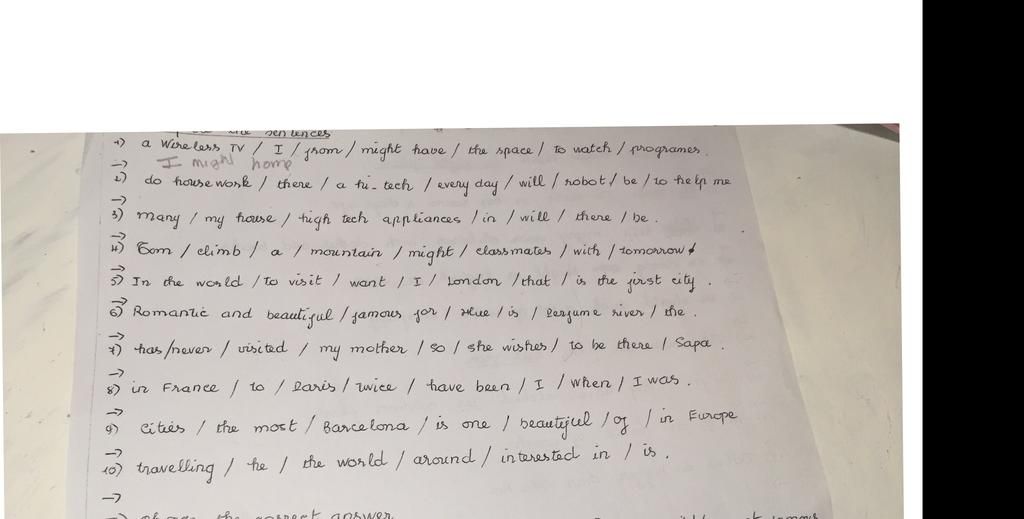 the sentences
1) a Wireless TV / I / from / might have / the space / to watch / programes.
→ I might home
2) do housework / there / a hi-tech / every day / will / robot / be / to help me
→
3) many / my house / high tech appliances / in / will / there / be.
→
4) Tom / climb / a / mountain / might / classmates / with / tomorrow
→
5) In the world / to visit / want / I / London / that / is the first city.
→
6) Romantic and beautiful / famous for / Hue / is / Perfume river / the.
→
7) has/never / visited / my mother / so / she wishes / to be there / Sapa.
→
8) in France / to / Paris / twice / have been / I / when / I was.
→
9) cities / the most / Barcelona / is one / beautiful / of / in Europe
→
10) travelling / he / the world / around / interested in / is.
→
the correct answer